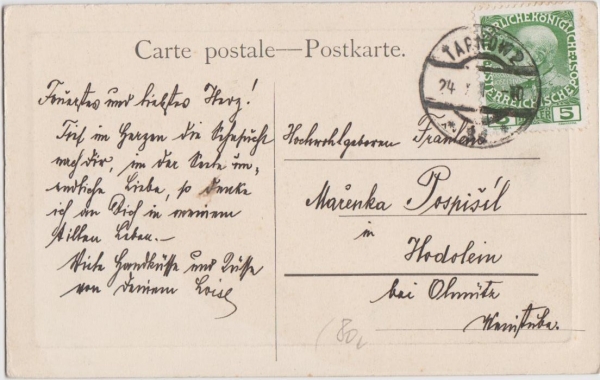 Carte postale—Postkarte.
TARNÓW 2
24
5
Teuerstes und liebstes Herz!
Tief im Herzen die Sehnsucht
nach Dir, in der Seele un-
endliche Liebe, so denke
ich an Dich in meinem
stillen Leben.—
Viele Handküsse und Küsse
von Deinem Loisl
Hochwohlgeboren Fräulein
Mařenka Pospišil
in
Hodolein
bei Olmütz
80